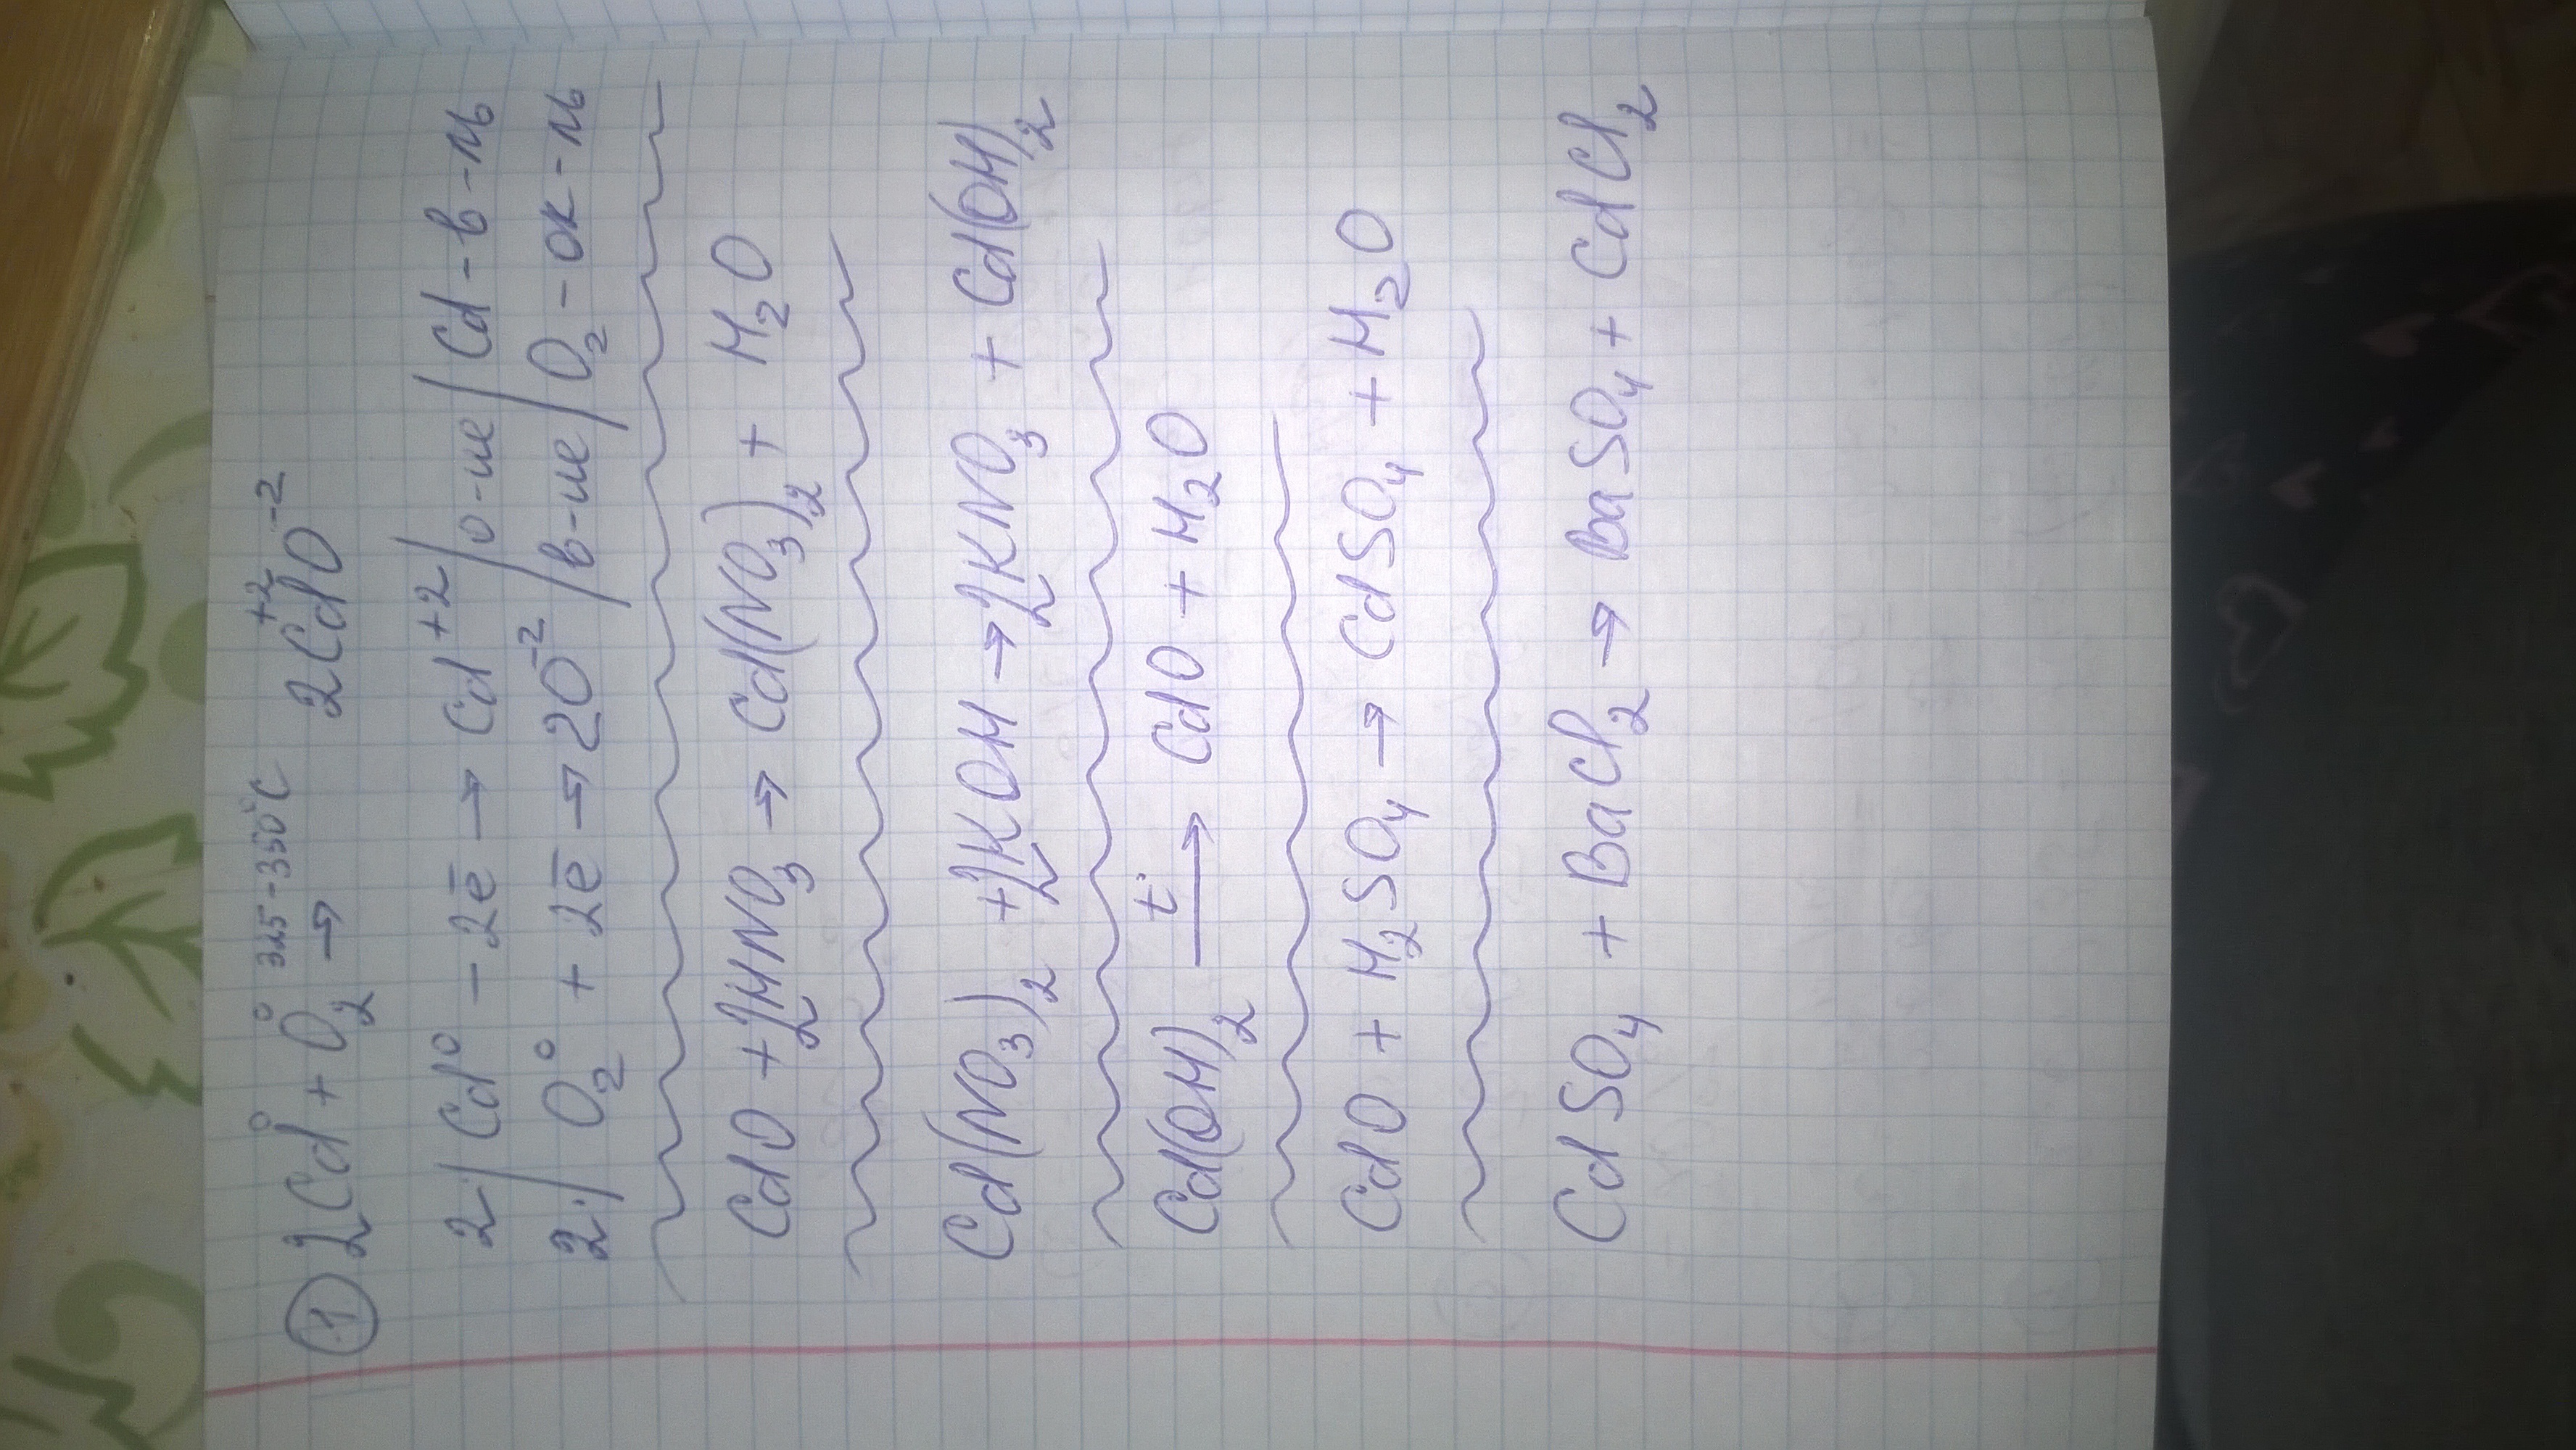 ① 2Cd⁰ + O₂⁰ 325-350°C → 2Cd⁺²O⁻²
2·| Cd⁰ - 2ē → Cd⁺² | о-ие | Cd - в-ль
2·| O₂⁰ + 2ē → 2O⁻² | в-ие | O₂ - ок-ль
CdO + 2HNO₃ → Cd(NO₃)₂ + H₂O
Cd(NO₃)₂ + 2KOH → 2KNO₃ + Cd(OH)₂
Cd(OH)₂ t° → CdO + H₂O
CdO + H₂SO₄ → CdSO₄ + H₂O
CdSO₄ + BaCl₂ → BaSO₄ + CdCl₂